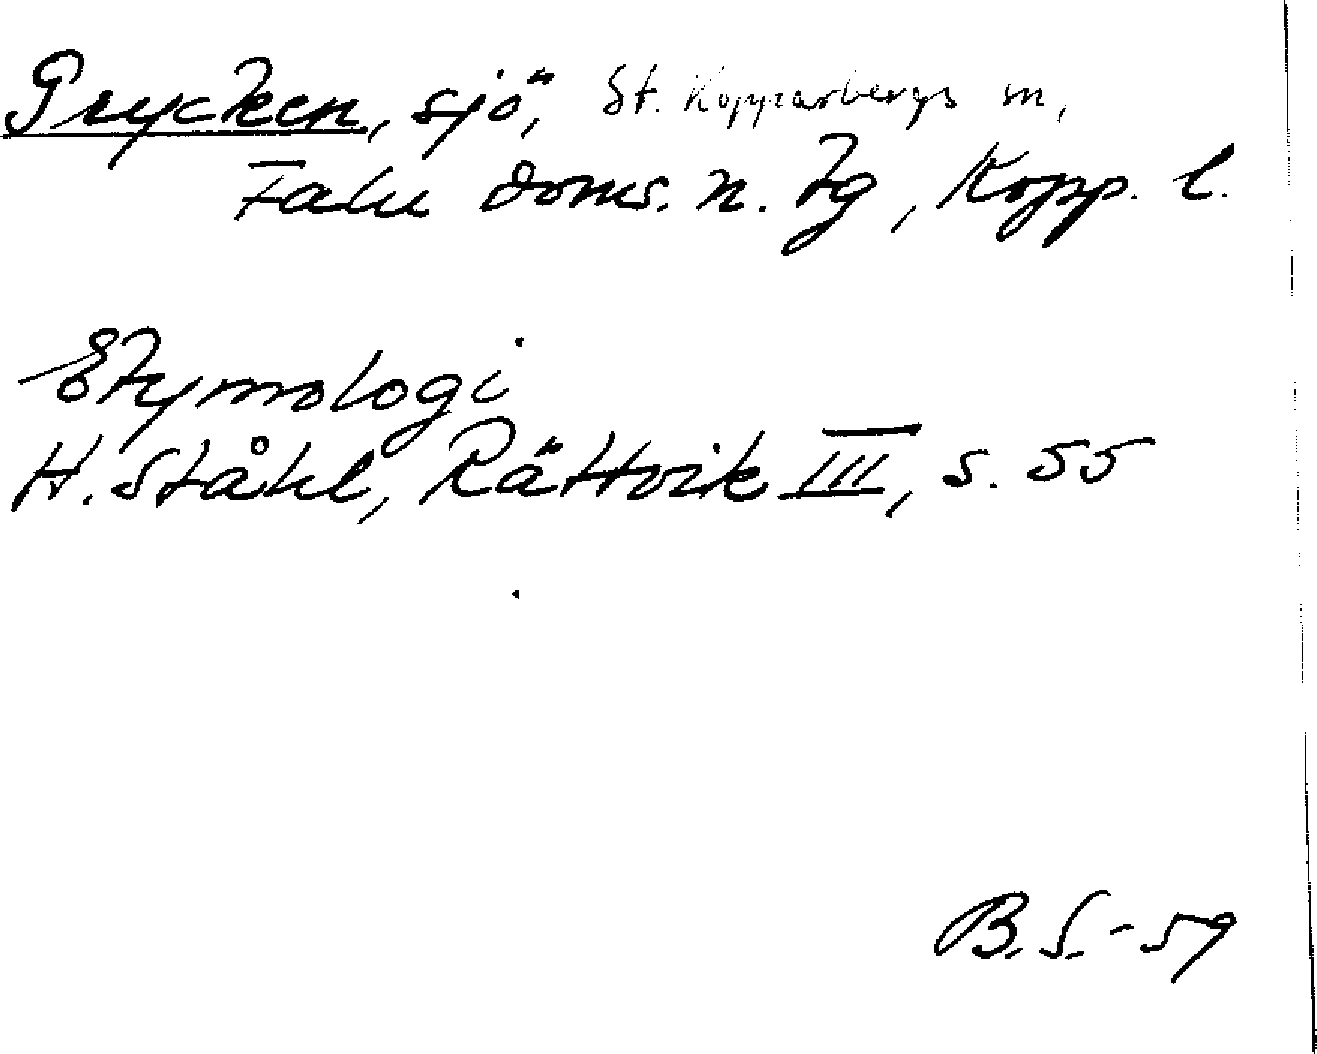 Grycken, sjö, St. Kopparbergs sn,
Falu doms. n. tg, Kopp. l.
Etymologi
H. Ståhl, Rättvik III, s. 55
B.S.-59